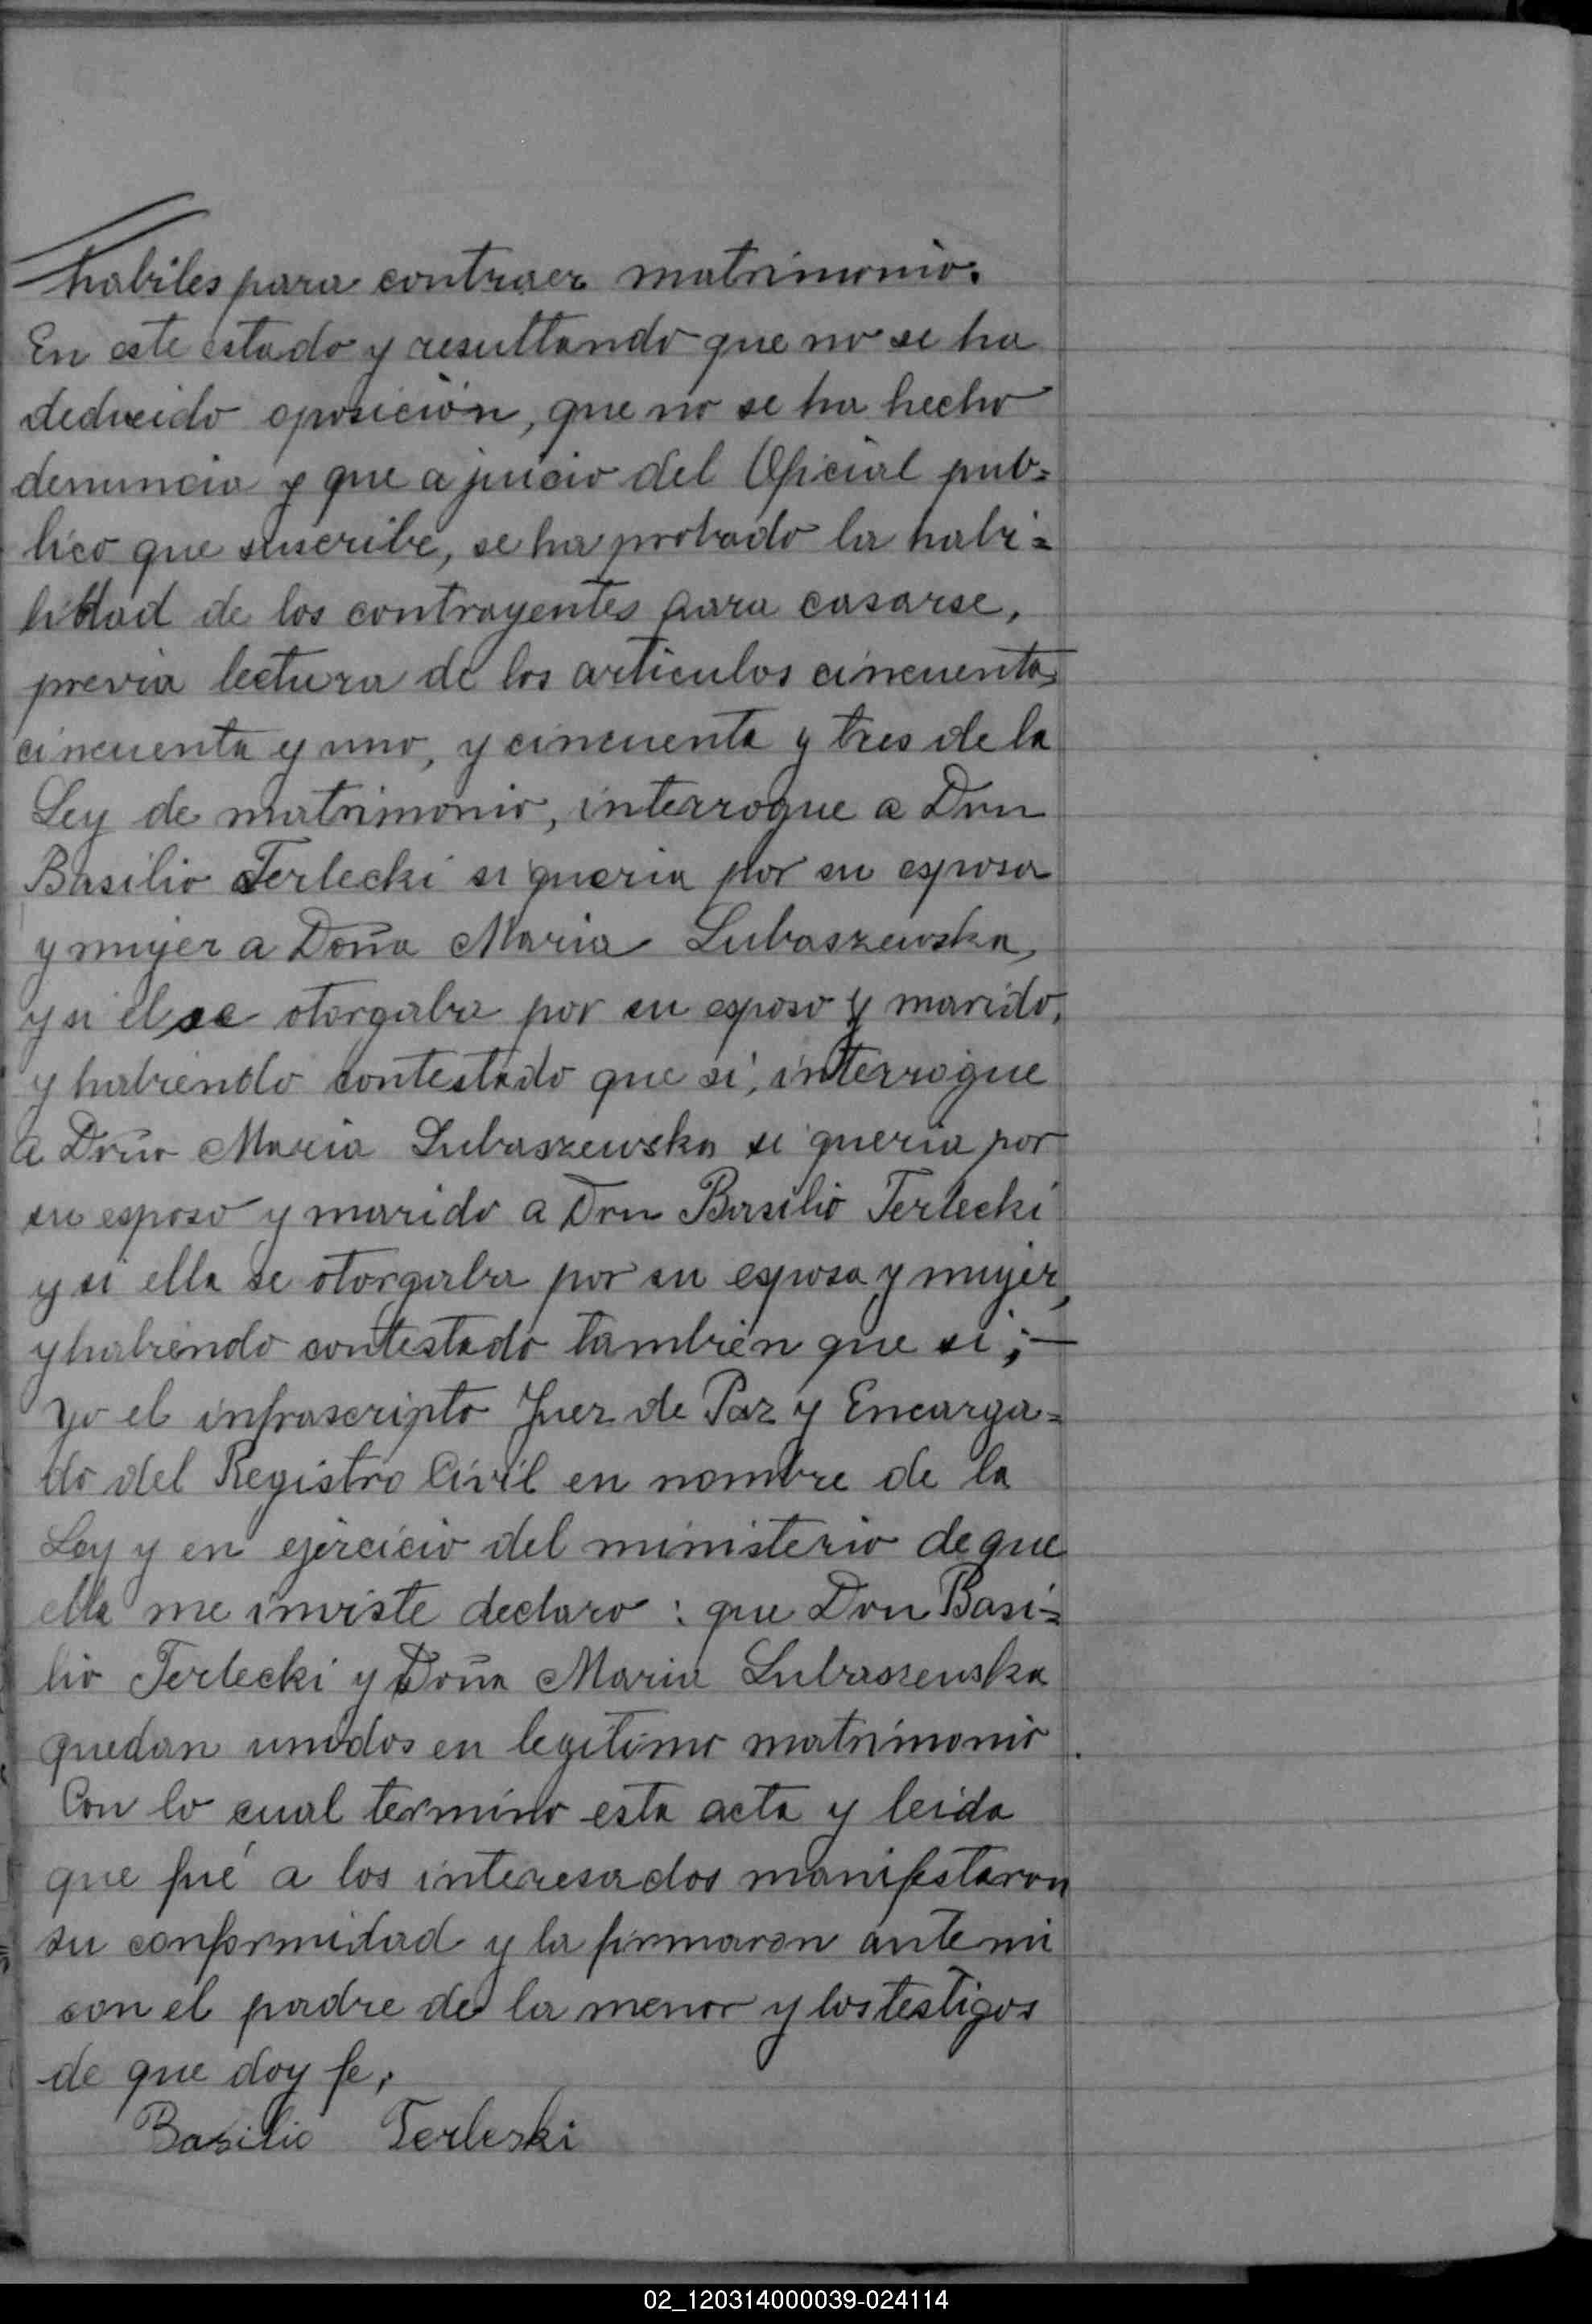 habiles para contraer matrimonio.
En este estado y resultando que no se ha
deducido oposición, que no se ha hecho
denuncia y que a juicio del Oficial pub=
lico que suscribe, se ha probado la habi=
lidad de los contrayentes para casarse,
previa lectura de los articulos cincuenta,
cincuenta y uno, y cincuenta y tres de la
Ley de matrimonio, interrogue a Don
Basilio Terlecki si queria por su esposa
y mujer a Doña Maria Lubaszewska,
y si el se otorgaba por su esposo y marido,
y habiendo contestado que si, interrogue
a Doña Maria Lubaszewska si queria por
su esposo y marido a Don Basilio Terlecki
y si ella se otorgaba por su esposa y mujer,
y habiendo contestado tambien que si;—
Yo el infrascripto Juez de Paz y Encarga=
do del Registro Civil en nombre de la
Ley y en ejercicio del ministerio de que
ella me inviste declaro: que Don Basi=
lio Terlecki y Doña Maria Lubaszewska
quedan unidos en legitimo matrimonio.
Con lo cual termino esta acta y leida
que fué a los interesados manifestaron
su conformidad y la firmaron ante mi
con el padre de la menor y los testigos
de que doy fe,
Basilio Terleski
02_120314000039-024114